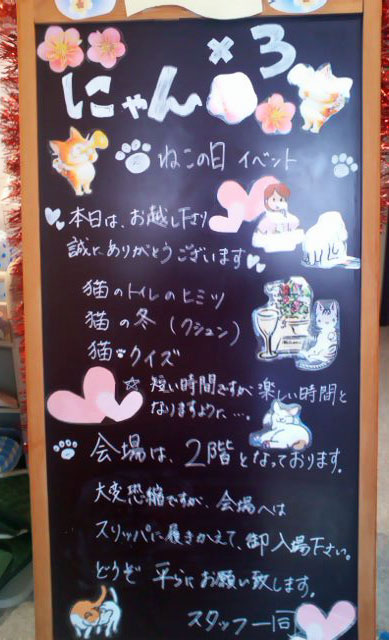 にゃん×3
ねこの日 イベント
本日は、お越し下さり
誠にありがとうございます
猫のトイレのヒミツ
猫の冬（クシュン）
猫クイズ
☆ 短い時間ですが楽しい時間と
なりますように…。
会場は、2階となっております。
大変恐縮ですが、会場へは
スリッパに履きかえて、御入場下さい。
どうぞ 平らにお願い致します。
スタッフ一同